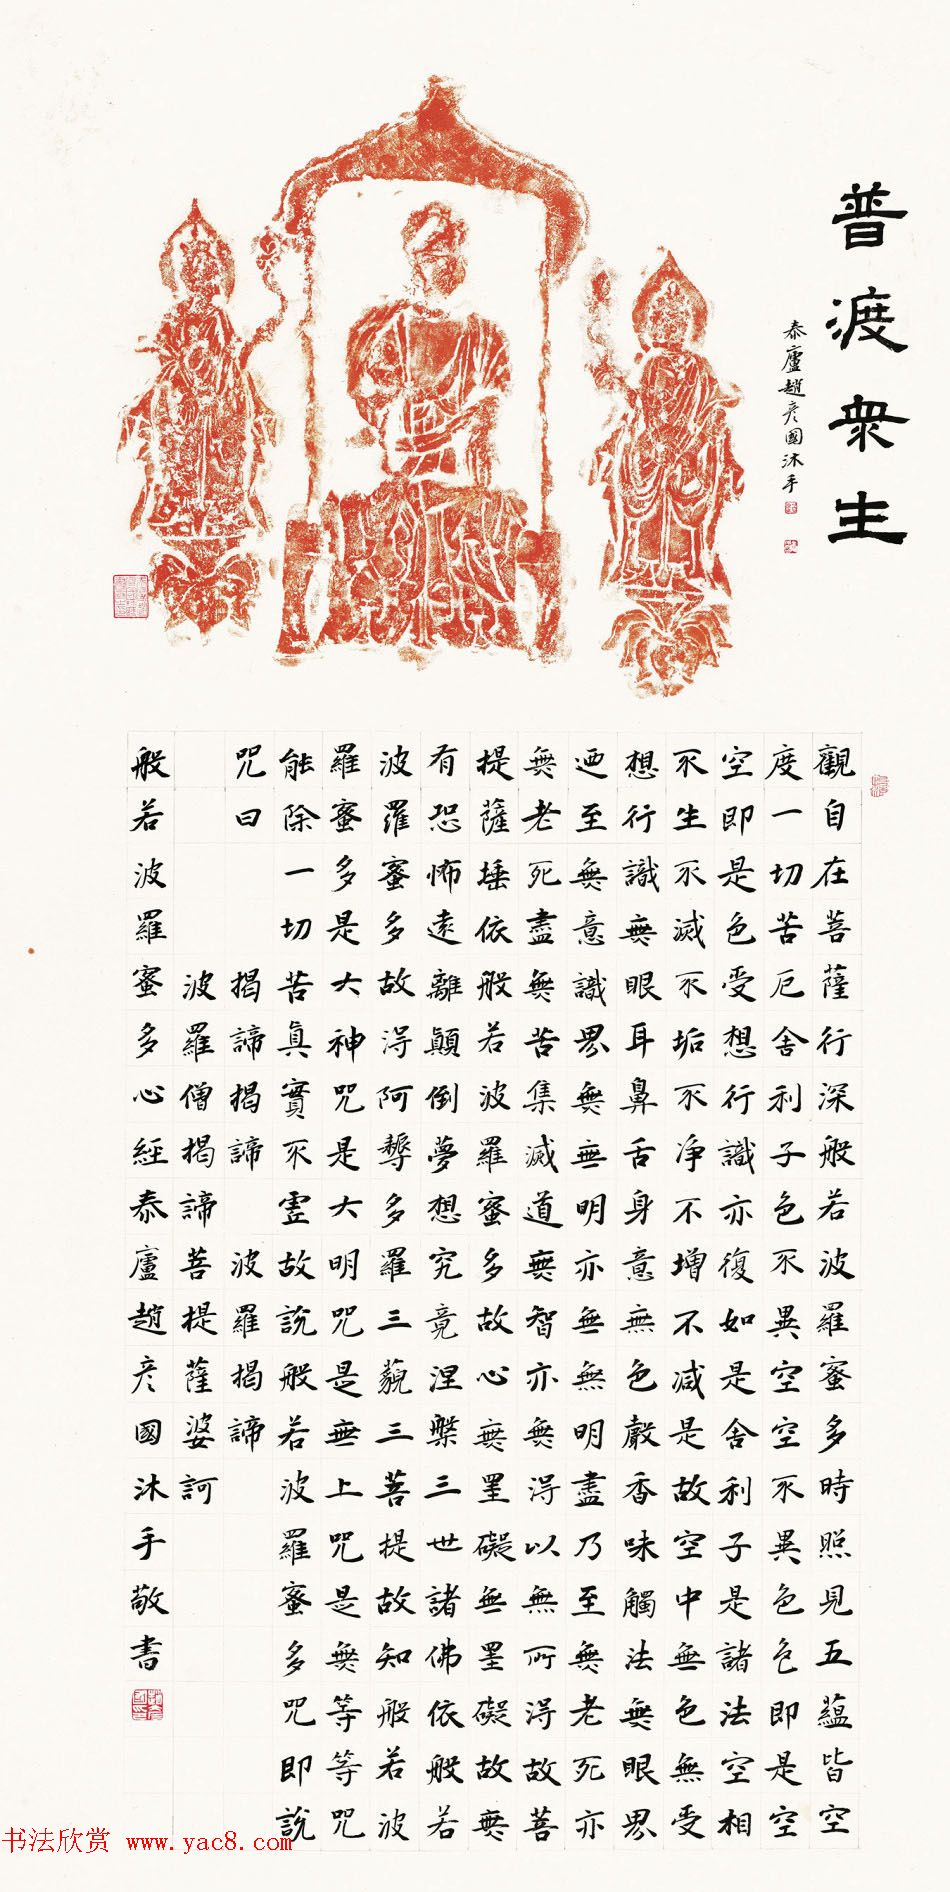 普渡衆生
泰廬趙彦國沐手
觀自在菩薩行深般若波羅蜜多時照見五蘊皆空
度一切苦厄舍利子色不異空空不異色色即是空
空即是色受想行識亦復如是舍利子是諸法空相
不生不滅不垢不净不增不减是故空中無色無受
想行識無眼耳鼻舌身意無色聲香味觸法無眼界
迺至無意識界無無明亦無無明盡乃至無老死亦
無老死盡無苦集滅道無智亦無得以無所得故菩
提薩埵依般若波羅蜜多故心無罣礙無罣礙故無
有恐怖遠離顛倒夢想究竟涅槃三世諸佛依般若
波羅蜜多故得阿耨多羅三藐三菩提故知般若波
羅蜜多是大神咒是大明咒是無上咒是無等等咒
能除一切苦真實不虛故説般若波羅蜜多咒即説
咒曰 揭諦揭諦 波羅揭諦
波羅僧揭諦菩提薩婆訶
般若波羅蜜多心經泰廬趙彦國沐手敬書
书法欣赏 www.yac8.com